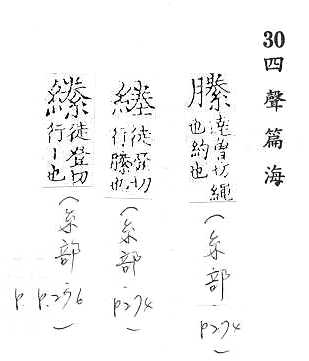 30 四聲篇海
縢 達曾切繩也約也 (糸部 p274)
徒登切行縢也 (糸部 p274)
徒登切行丨也 (糸部